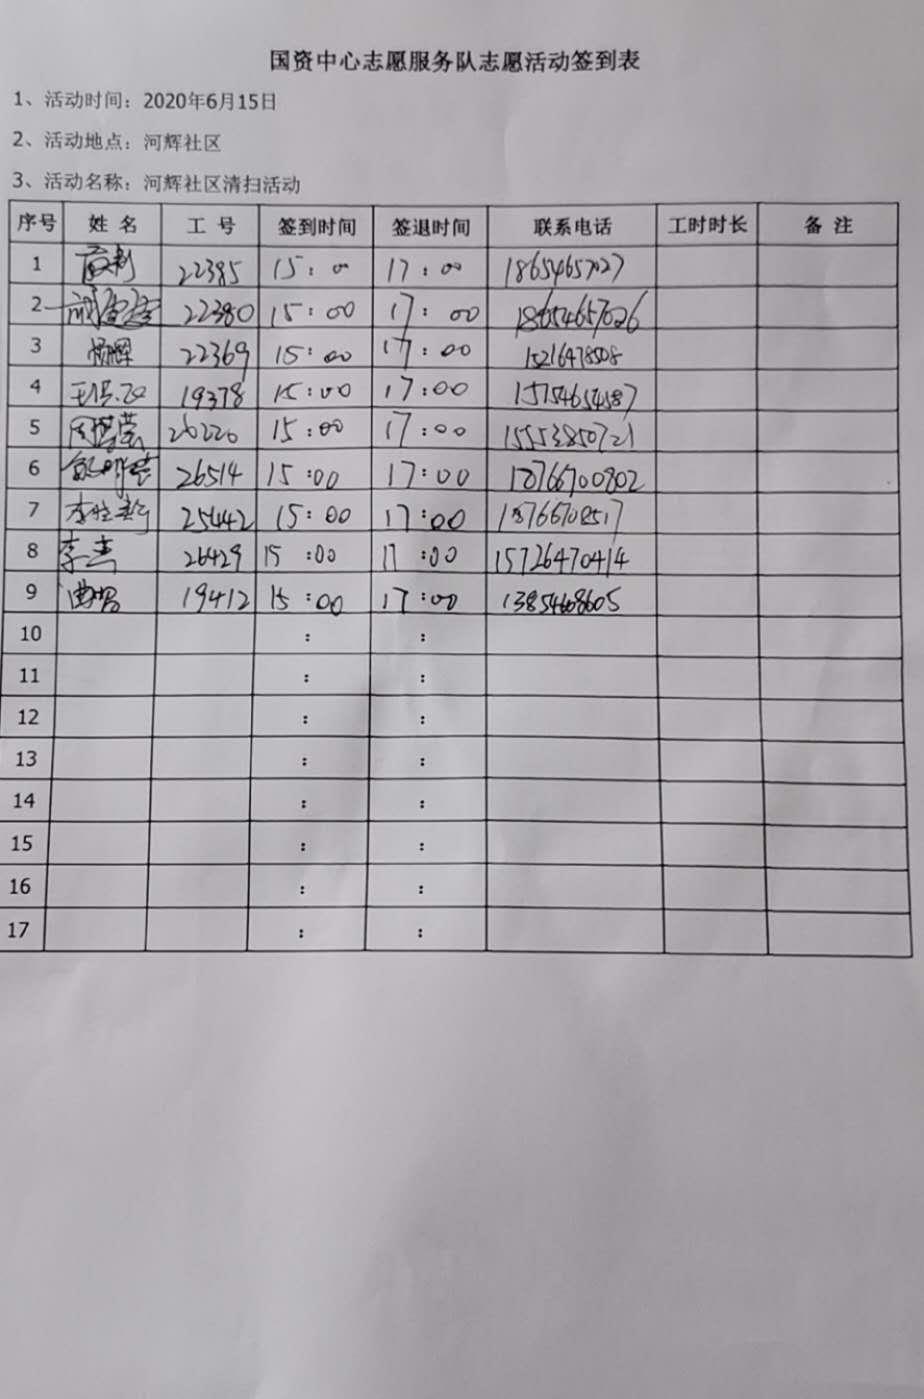 国资中心志愿服务队志愿活动签到表
1、活动时间：2020年6月15日
2、活动地点：河辉社区
3、活动名称：河辉社区清扫活动
序号 姓 名 工 号 签到时间 签退时间 联系电话 工时时长 备 注
1 22385 15：00 17：00 18654657027
2 22380 15：00 17：00 18654657026
3 杨辉 22369 15：00 17：00 15216478508
4 19378 15：00 17：00 15754654587
5 26226 15：00 17：00 15553850721
6 26514 15：00 17：00 18766700802
7 25442 15：00 17：00
8 李杰 26429 15：00 17：00 15726470414
9 19412 15：00 17：00 13854668605
10 ： ：
11 ： ：
12 ： ：
13 ： ：
14 ： ：
15 ： ：
16 ： ：
17 ： ：